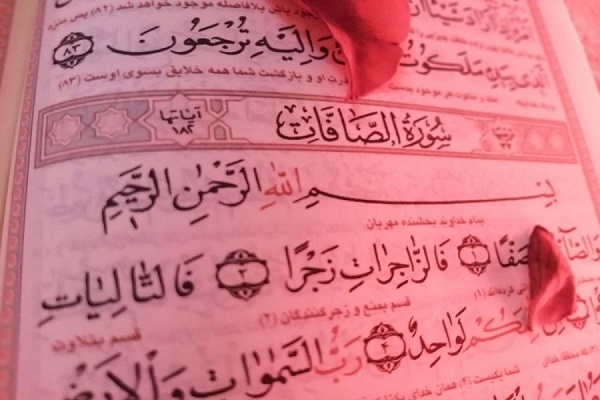 موجود باش بلافاصله موجود خواهد شد (۸۲)
مَلَكُوتُ وَإِلَيْهِ تُرْجَعُونَ ﴿۸۳﴾
قدرت او و بازگشت شما همه خلایق بسوی اوست (۸۳)
سُورَةُ الصَّافَاتِ آیاتها ۱۸۲
بِسْمِ اللَّهِ الرَّحْمَٰنِ الرَّحِيمِ
بنام خداوند بخشنده مهربان
صَفًّا ﴿۱﴾ فَالزَّاجِرَاتِ زَجْرًا ﴿۲﴾ فَالتَّالِيَاتِ
(۱) قسم بمنع و زجرکنندگان (۲) قسم بتلاوت
لَوَاحِدٌ ﴿۴﴾ رَبُّ السَّمَٰوَاتِ وَالْأَرْضِ
شما یکیست (۴) همان خدای